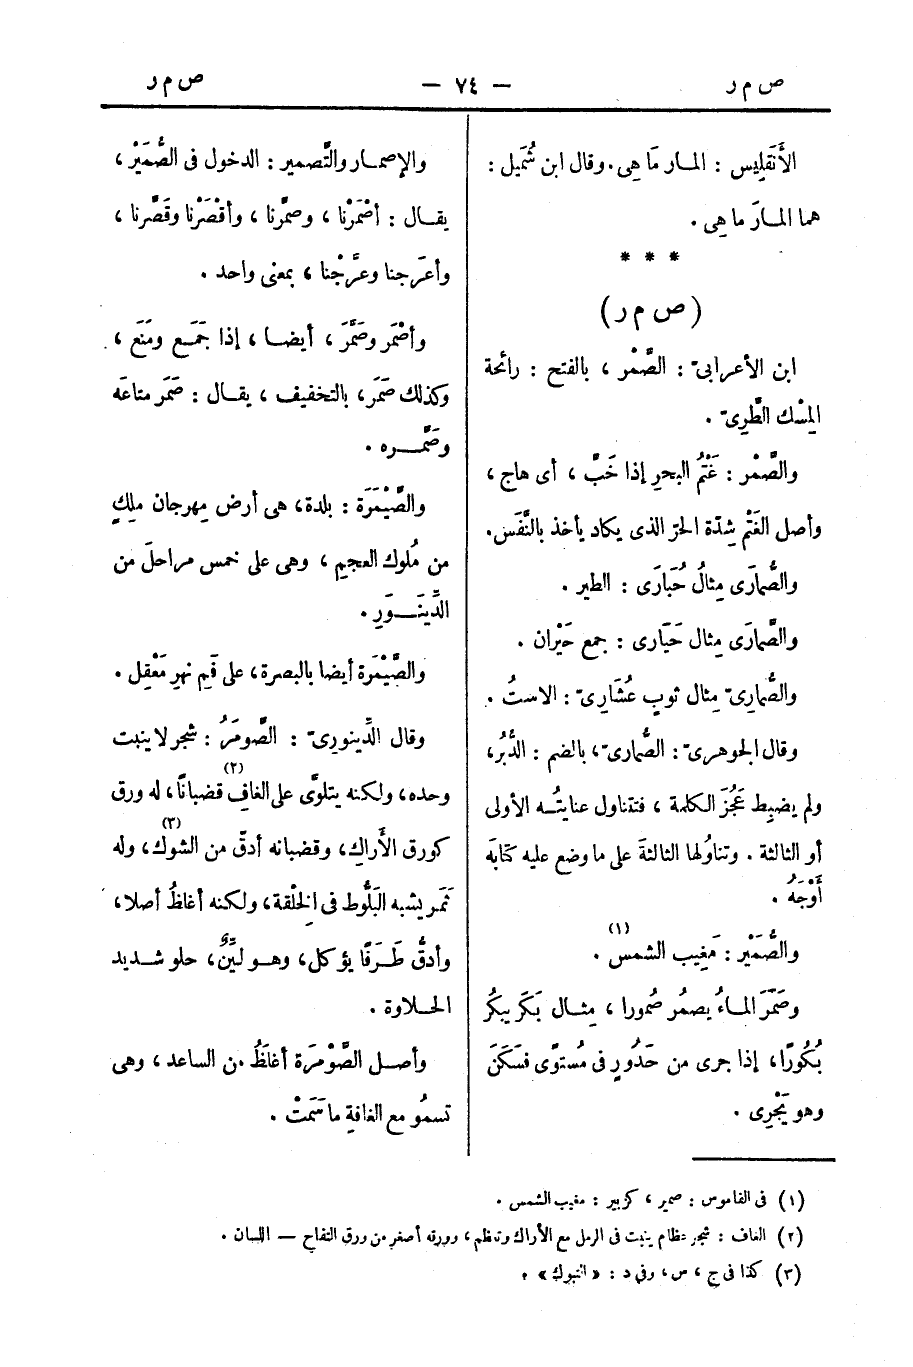 ص م ر — ٧٤ — ص م ر
الأَنقَلِيس : المـار مَا هِى. وقال ابن شُمَيل :
هما المـارَ ما هِى .
* * *
(ص م ر)
ابن الأعرابىّ : الصَّمْر ، بالفتح : رائحة
المِسْك الطَّرِىّ .
والصَّمْر : غَتْمُ البحرِ إذا خَبَّ ، أى هاج ،
وأصل الغَتْم شِدّة الحرّ الذى يكاد يأخذ بالنَّفَس.
والصُّمَارَى مِثالُ حُبَارَى : الطير .
والصَّمارَى مِثال حَيَارى : جمع حَيْران .
والصُّمارِىّ مِثال ثوبٍ عُشَارِىّ : الاستُ .
وقال الجوهرىّ : الصُّمارىّ، بالضم : الدُّبُر،
ولم يضبِط عَجُزَ الكلمة ، فتتناول عنايتُـه الأولى
أو الثالثة . وتناوُلها الثالثةَ على ما وضع عليه كتابَه
أَوْجَهُ .
والصُّمَيْر : مَغِيب الشمس (١) .
وصَمَرَ المـاءُ يصمُر صُمورا ، مِثـال بَكَر يبكُر
بُكُورًا، إذا جرى من حَدُورٍ فى مُستَوًى فسَكَنَ
وهو يَجْرِى .
والإصمـار والتَّصمير : الدخول فى الصُّمَيْر ،
يقـال : أصْمَرْنا ، وصمَّرنا ، وأقْصَرْنا وقَصَّرنا ،
وأعرَجنا وعرَّجْنا ، بمعنى واحد .
وأصْمَر وصَمَّرَ ، أيضـا ، إذا جَمَـع ومَنَع ،
وكذلك صَمَرَ، بالتخفيف ، يقـال : صَمَر متاعَه
وصَمَّـره .
والصَّيْمَرَة : بلدة، هى أرض مِهرجان مَلِكٍ
من مُلوك العجمِ ، وهى على خمس مراحلَ من
الدِّينَـوَرِ .
والصَّيْمَرة أيضا بالبصرة، على فَمِ نهرِ مَعْقِل .
وقال الدِّينورىّ : الصَّومَرُ : شجر لا ينبت
وحده، ولكنه يتلوّى على الغافِ (٢) قضبانًا، له ورق
كورق الأَراكِ، وقضبانه أدقّ من الشوك (٣)، وله
ثمَر يشبه البَلُّوط فى الخِلْقة، ولكنه أغلظُ أصلا،
وأدقُّ طَـرَفًا يؤكل، وهـو ليِّنٌ، حلو شـديد
الحـلاوة .
وأصـل الصَّوْمَرَة أغلَظُ من الساعد ، وهى
تسمُو مع الغافةِ ما سَمَتْ .
(١) فى القاموس : صمير ، كزبير : مغيب الشمس .
(٢) الغاف : شجر عظام ينبت فى الرمل مع الأراك وتعظم ، وورقه أصغر من ورق التفاح — اللسان .
(٣) كذا فى ج ، س ، وفى د : «التبوك» .